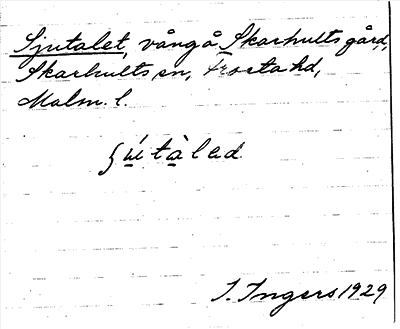 Sjutalet, vång å Skarhults gård,
Skarhults sn, Frosta hd,
Malm. l.
I. Ingers 1929